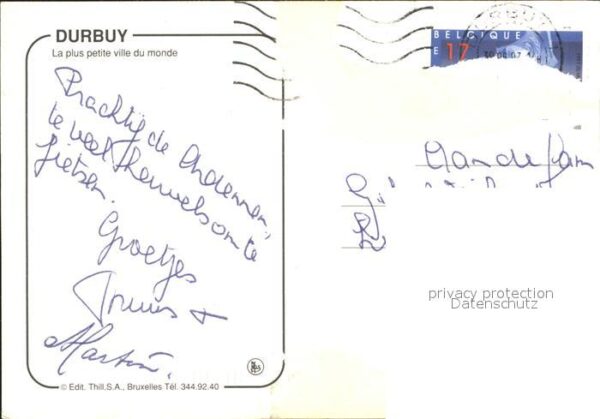 DURBUY
La plus petite ville du monde
Prachtig de Ardennen,
te veel heuvels om te
fietsen.
Groetjes
+
Martin.
© Edit. Thill, S.A., Bruxelles Tél. 344.92.40
BELGIQUE
E 17
privacy protection
Datenschutz